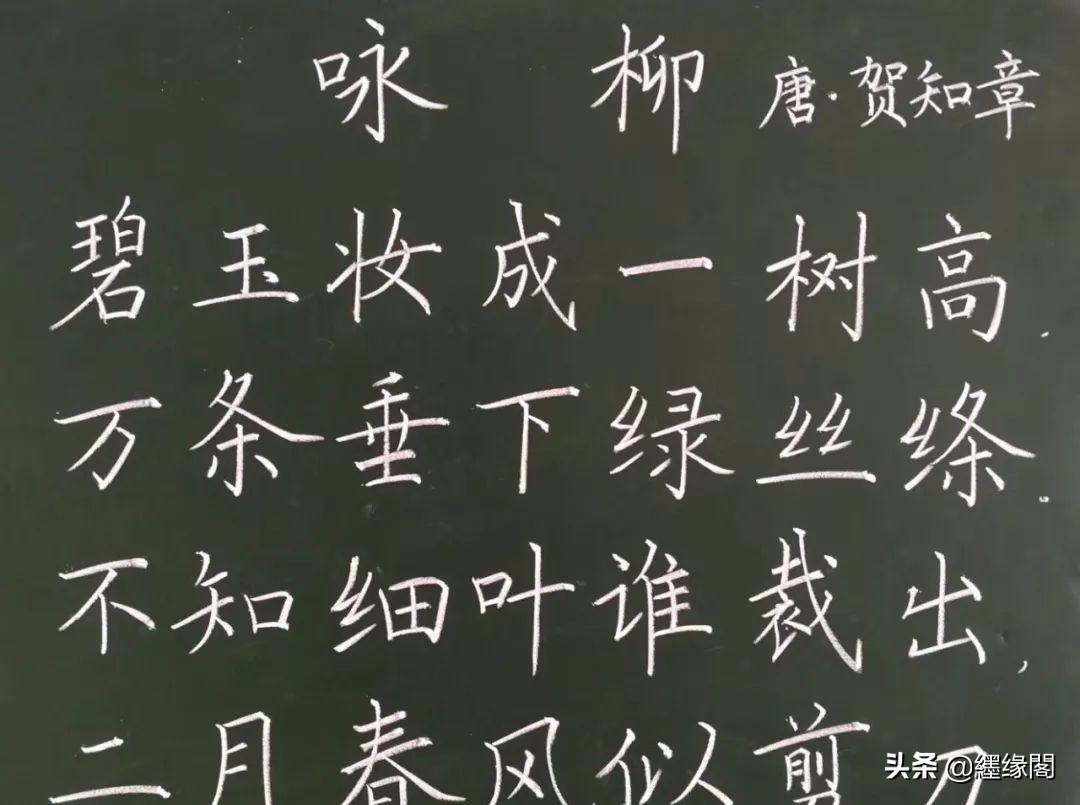 咏柳 唐·贺知章
碧玉妆成一树高.
万条垂下绿丝绦。
不知细叶谁裁出,
二月春风似剪刀
头条 @纆缘閣